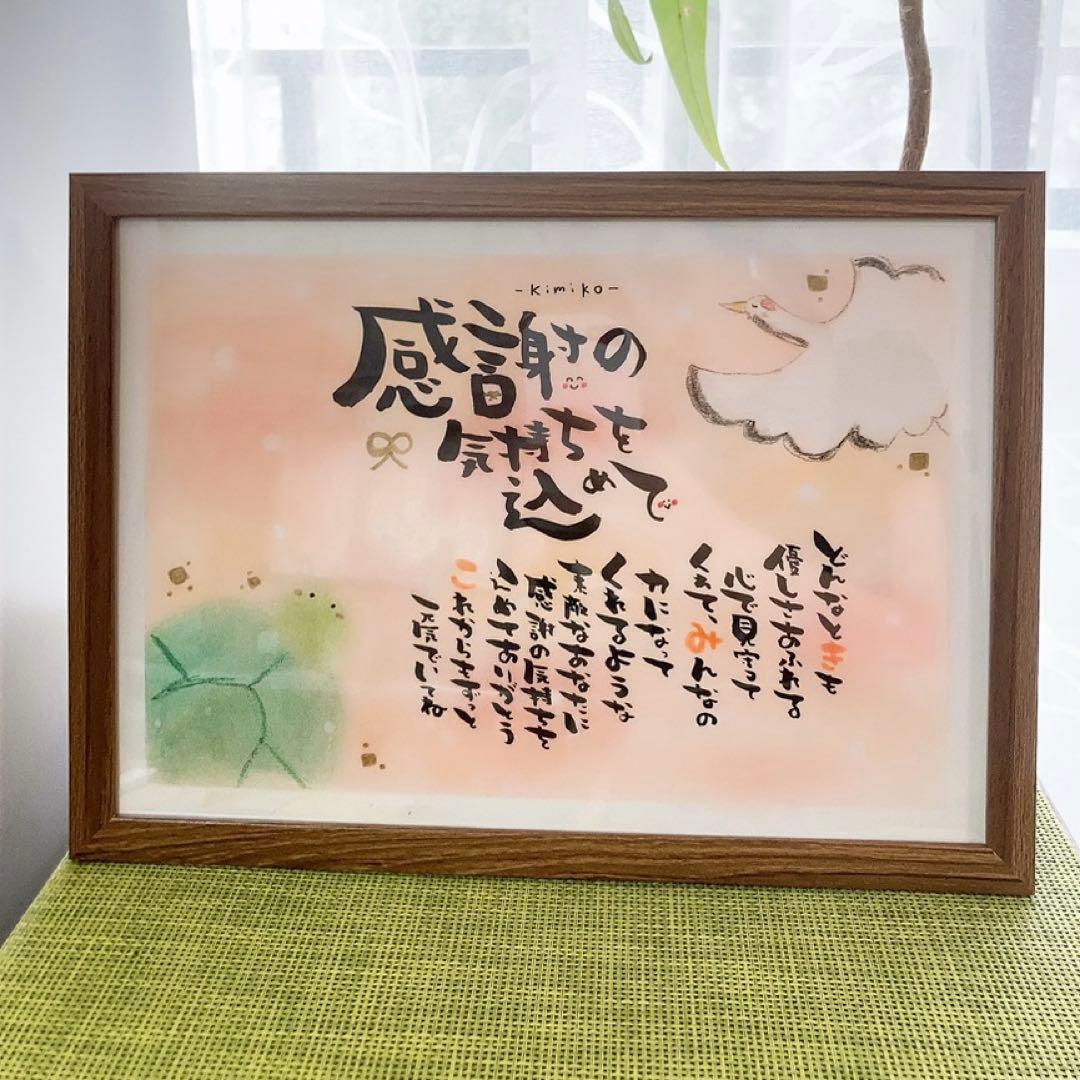 -kimiko-
感謝の
気持ちを
込めて
どんなときも
優しさあふれる
心で見守って
くれて、みんなの
力になって
くれるような
素敵なあなたに
感謝の気持ちを
込めてありがとう
これからもずっと
元気でいてね